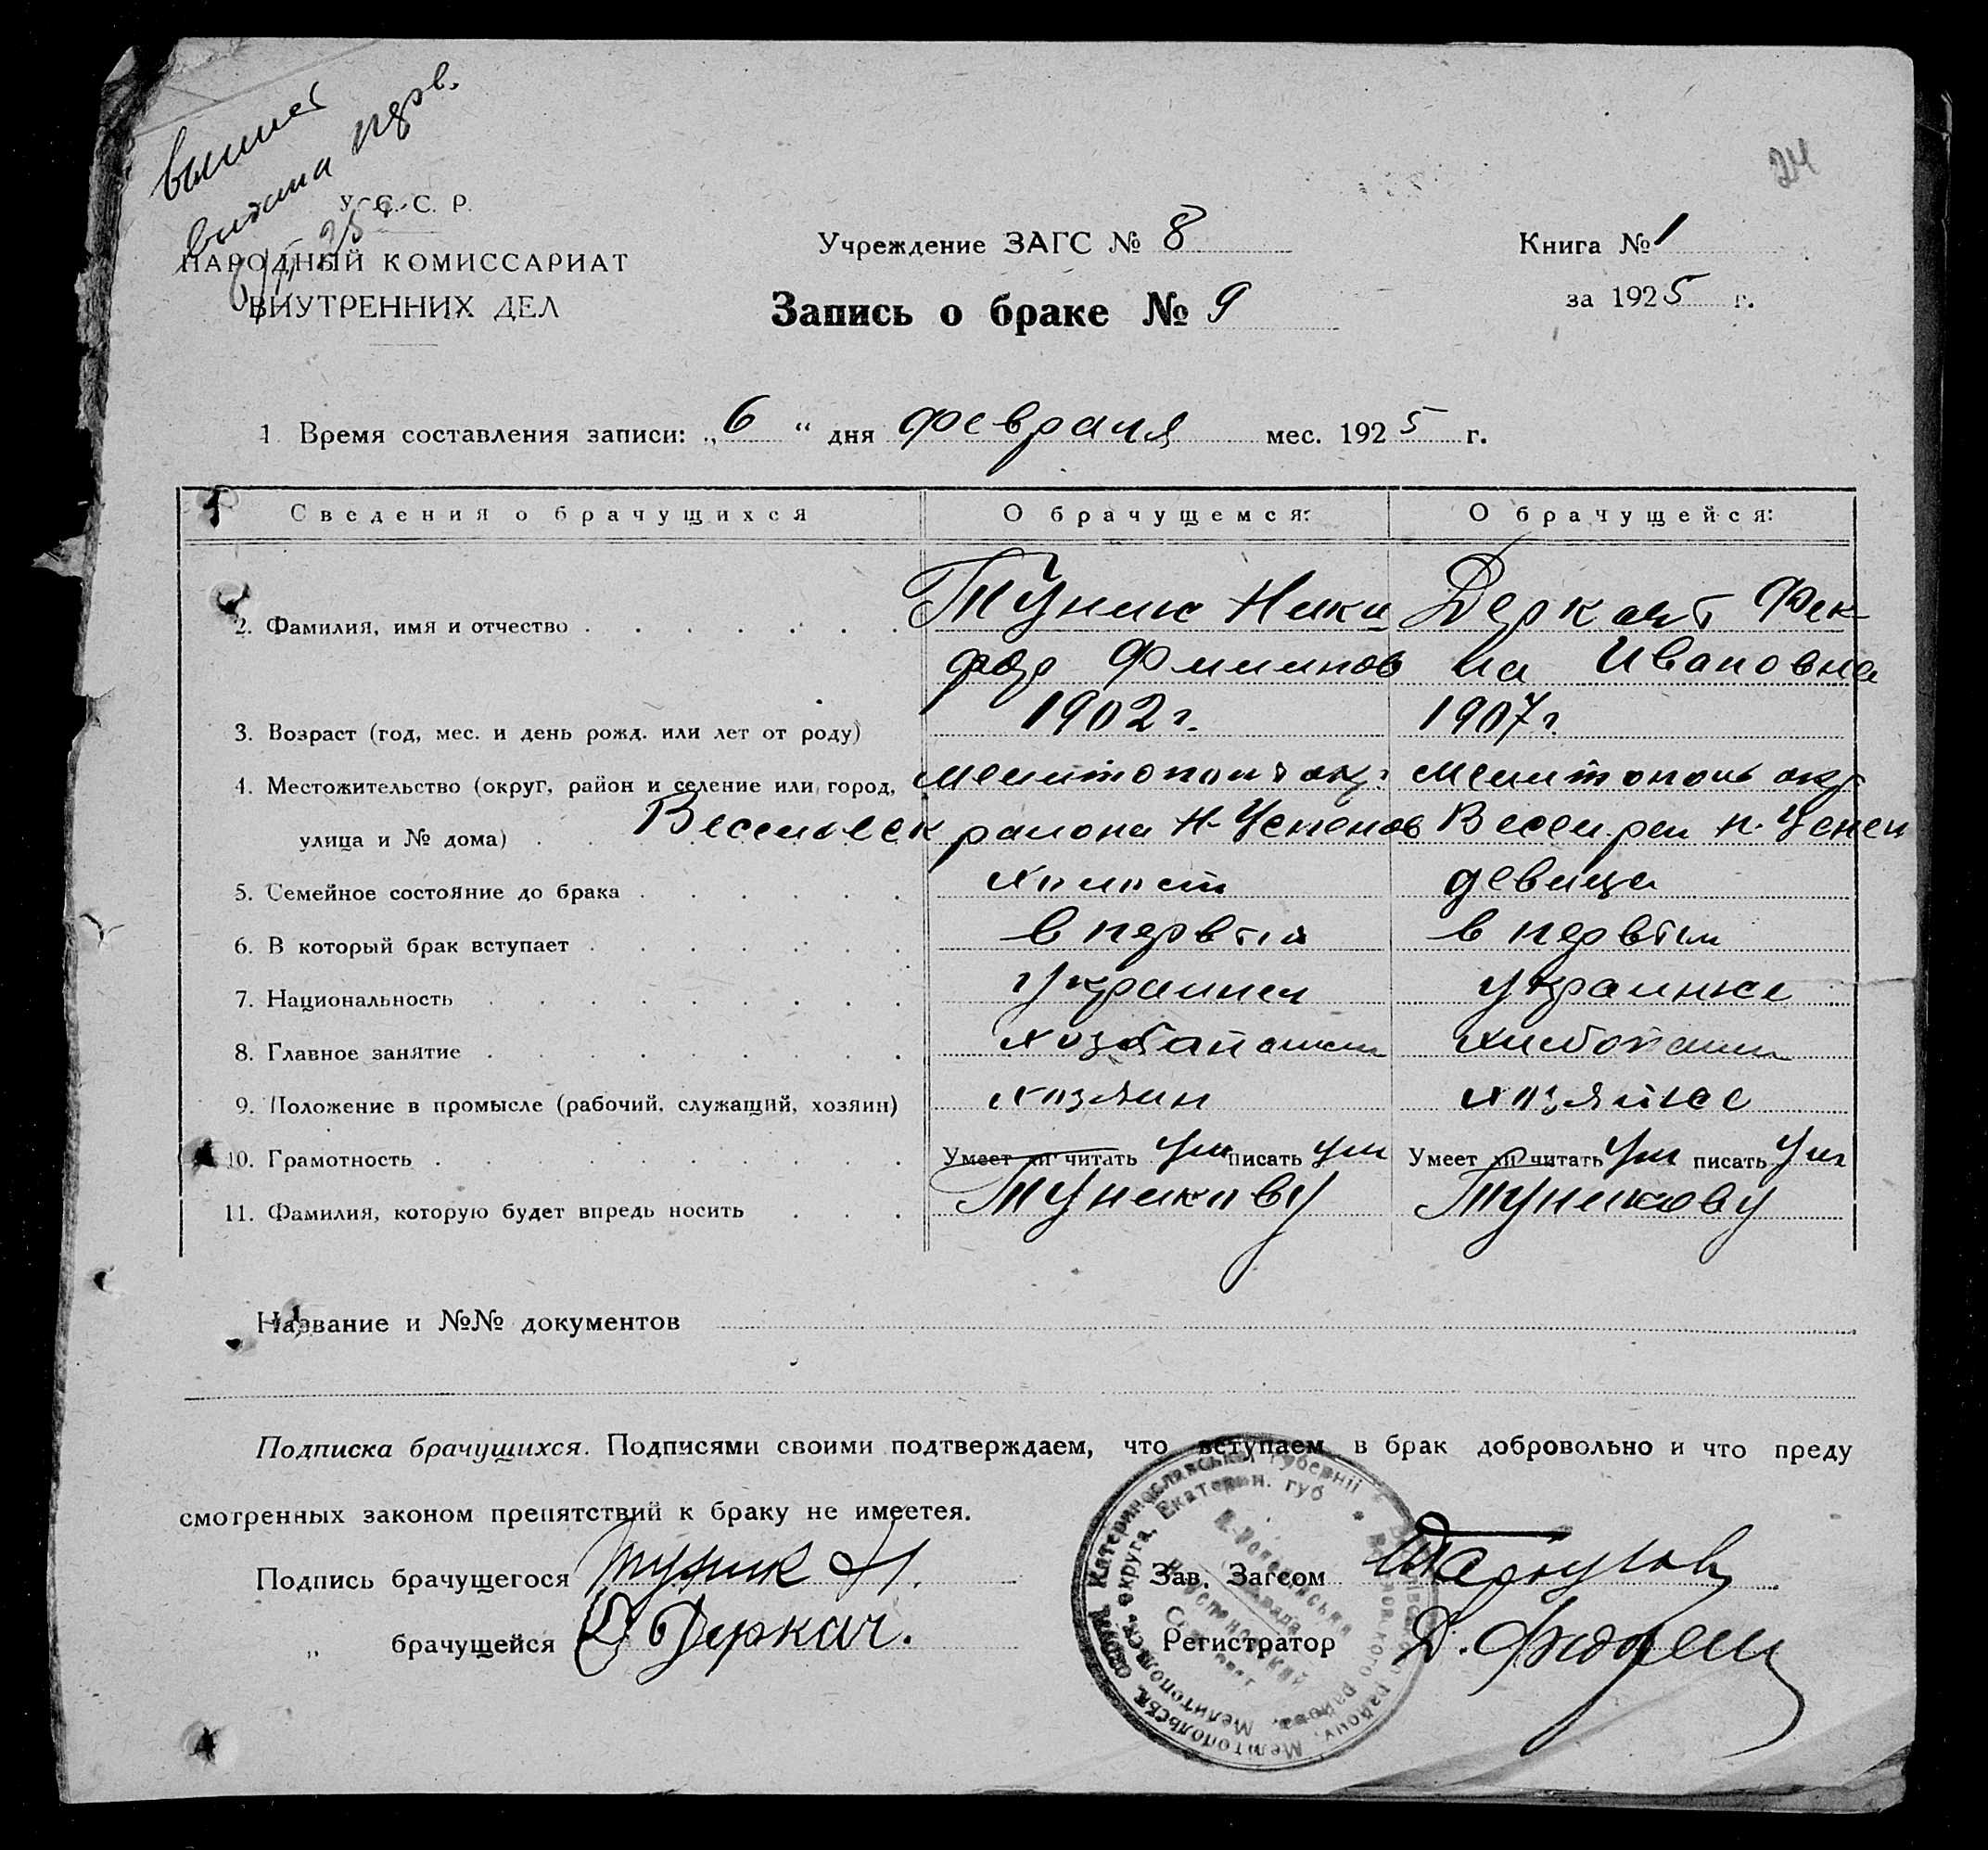 24
выписка
выдана
У. С. С. Р.
НАРОДНЫЙ КОМИССАРИАТ
ВНУТРЕННИХ ДЕЛ
Учреждение ЗАГС № 8
Книга № 1
Запись о браке № 9
за 1925 г.
1 Время составления записи: „6 “ дня февраля мес. 1925 г.
Сведения о брачущихся О брачущемся: О брачущейся:
2. Фамилия, имя и отчество Туник Ники Деркач Фек-
фор Филипов ла Ивановна
3. Возраст (год, мес. и день рожд. или лет от роду) 1902 г. 1907 г.
4. Местожительство (округ, район и селение или город, Мелитополь окр. Мелитополь окр.
улица и № дома) Веселовск района Н-Успенов Весел. рай Н. Успен
5. Семейное состояние до брака холост девица
6. В который брак вступает в первый в первый
7. Национальность украинец украинка
8. Главное занятие хлебопашец
9. Положение в промысле (рабочий, служащий, хозяин) хозяин хозяйка
10. Грамотность Умеет ли читать ум писать ум Умеет ли читать ум писать ум
11. Фамилия, которую будет впредь носить Туникову Туникову
Название и №№ документов
Подписка брачущихся. Подписями своими подтверждаем, что вступаем в брак добровольно и что преду
смотренных законом препятствий к браку не имеетея.
Подпись брачущегося Туник Н. Зав. Загсом
„ брачущейся Деркач. Регистратор Д.
Мелитопольськ. округи, Катеринославської губернії
Мелитопольск. округа, Екатерин. губ